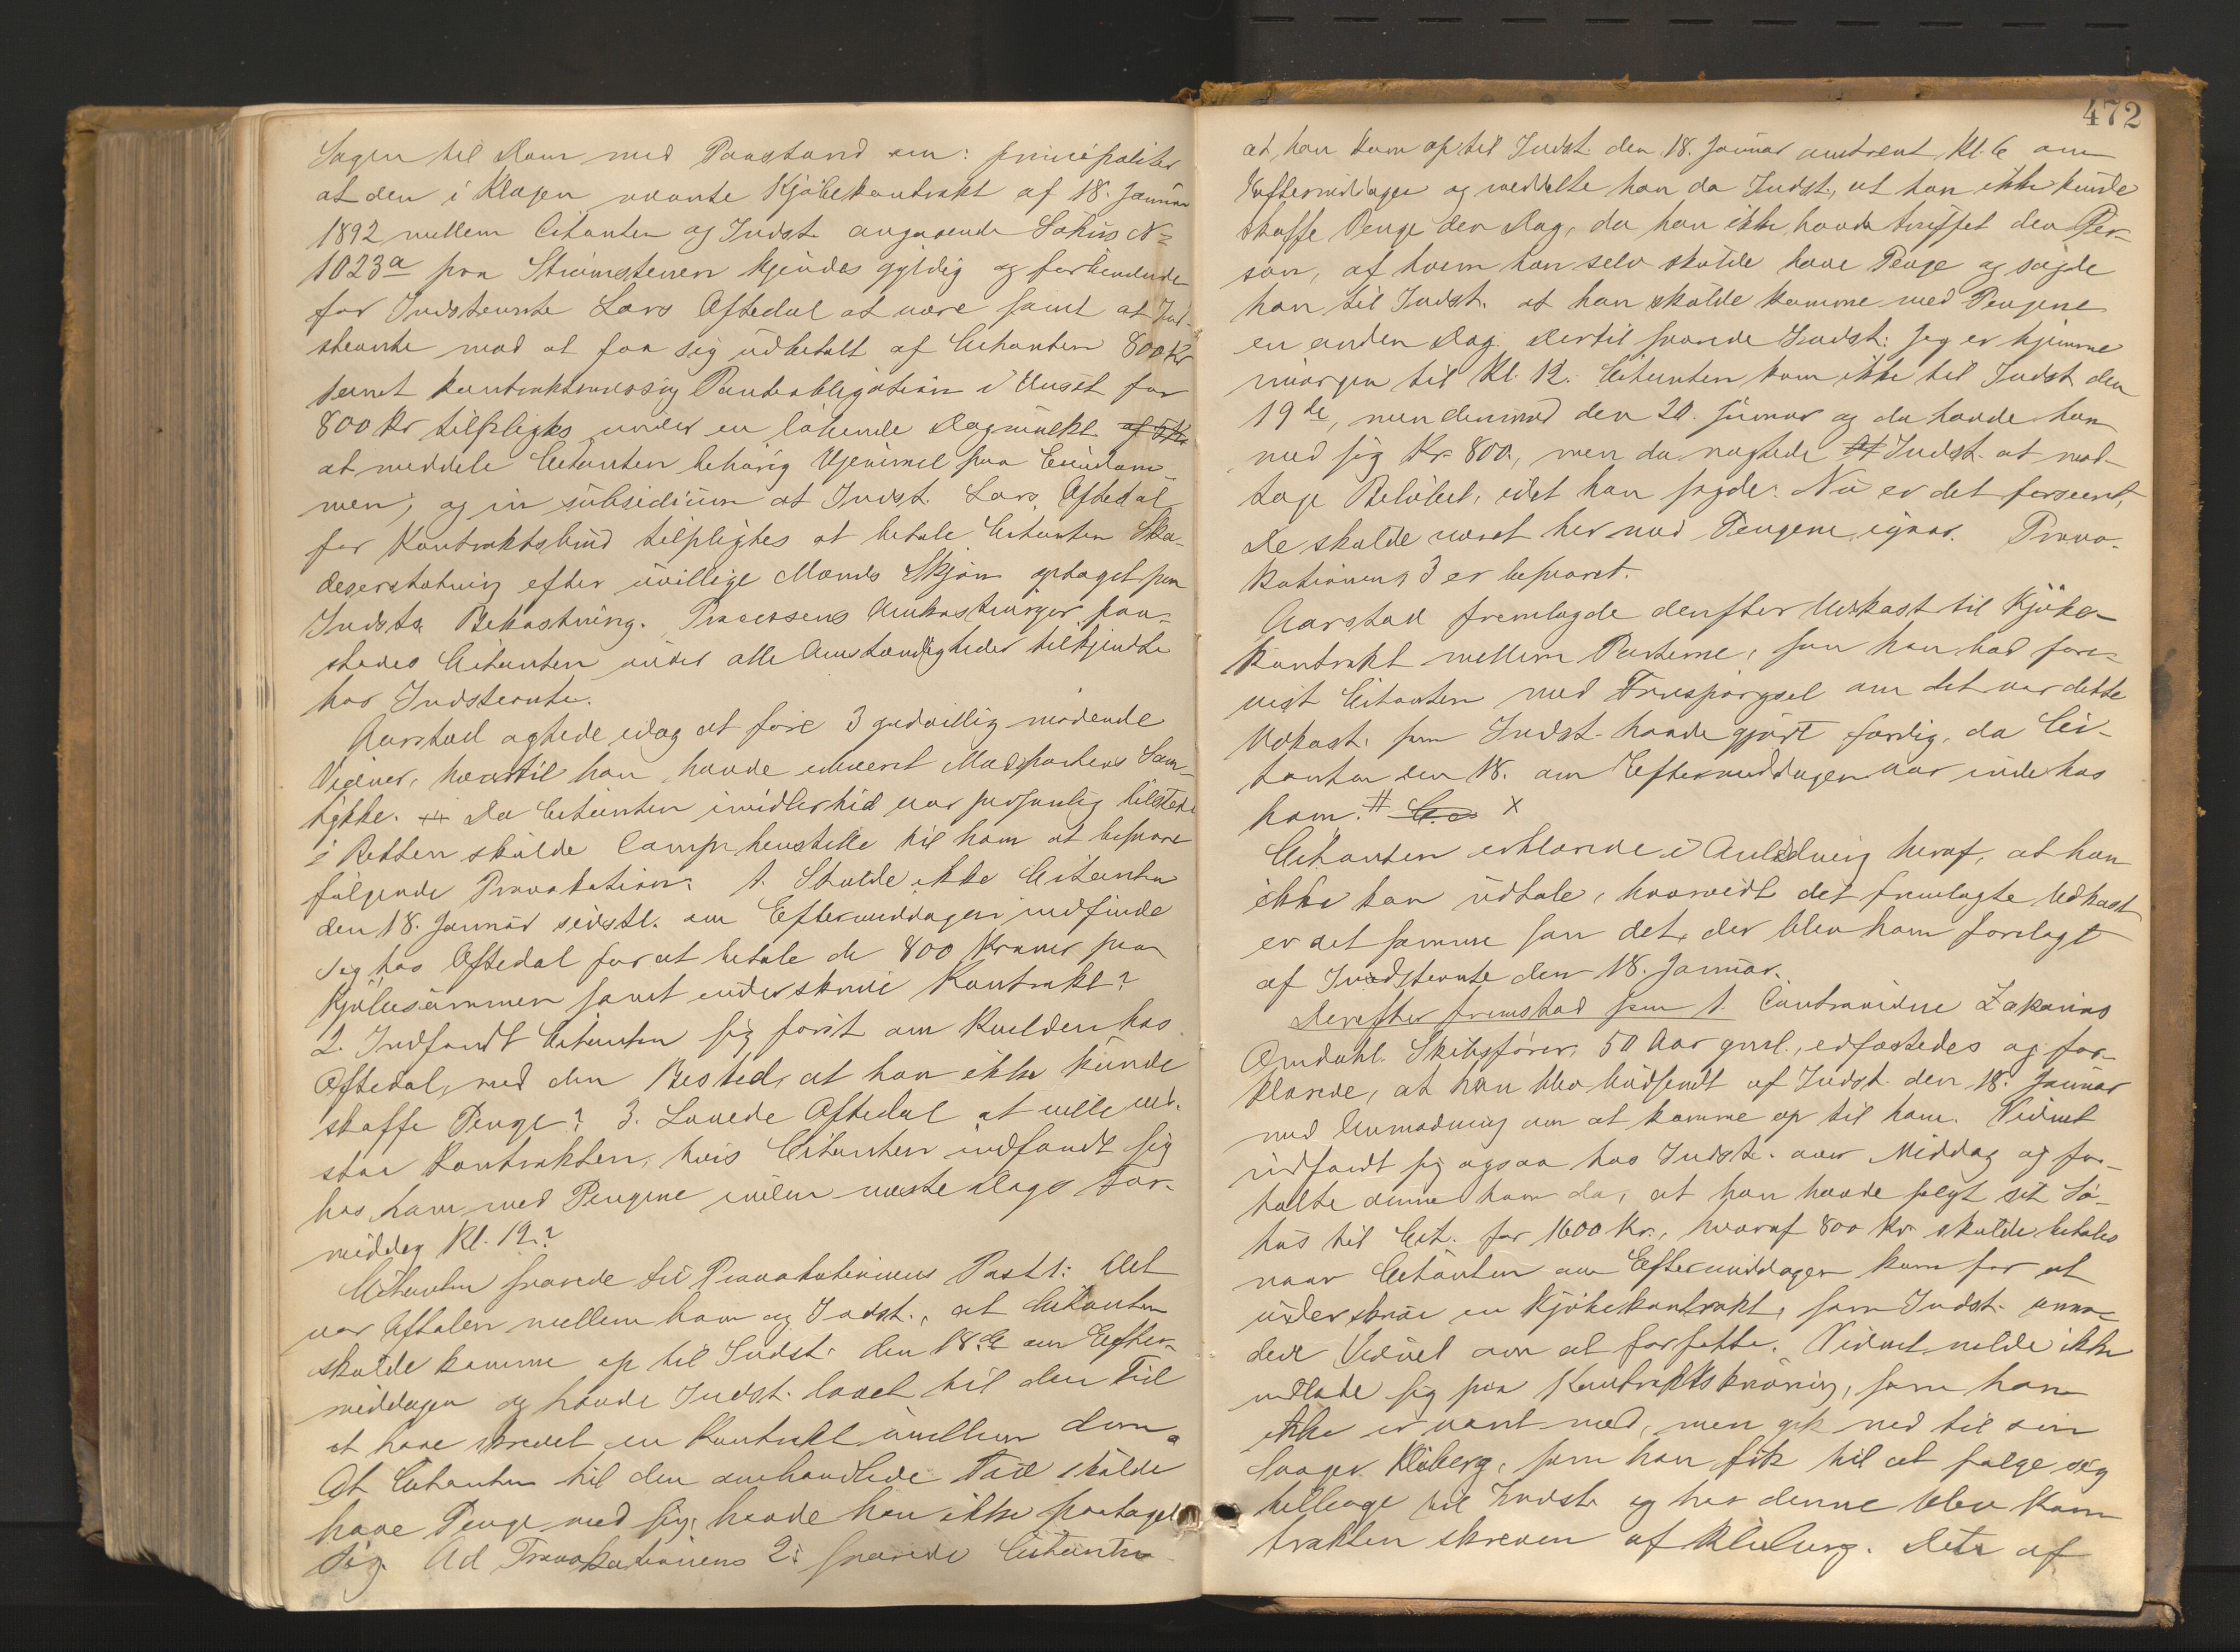 Sagen til Dom med Paastand om: principaliter
at den i Klagen nævnte Kjöbekontrakt af 18. Januar
1892 mellem Citanten og Indst. angaaende Söhus No
1023a paa Strömstenen kjendes gyldig og forbindende
for Indstevnte Lars Oftedal at være samt at Ind-
stevnte mod at faa sig udbetalt af Citanten 800 Kr
samt kontraktmæssig Panteobligation i Huset for
800 Kr tilpligtes under en löbende Dagmulkt af 5 Kr
at meddele Citanten behörig Hjemmel paa Eiendom-
men; og in subsidium at Indst. Lars Oftedal
for Kontraktsbrud tilpligtes at betale Citanten Ska-
deserstatning efter uvillige Mænds Skjön optaget paa
Indsts Bekostning. Processens Omkostninger paa-
stodes Citanten under alle Omstændigheder tilkjendte
hos Indstevnte.
Aarstad agtede idag at före 3 godvillig mödende
Vidner, hvortil han havde erhvervet Modpartens Sam-
tykke. Da Citanten imidlertid var personlig tilstede
i Retten skulde Comp. henstille til ham at besvare
fölgende Provokation: 1. Skulde ikke Citanten
den 18. Januar sidstl. om Eftermiddagen indfinde
sig hos Oftedal for at betale de 800 Kroner paa
Kjöbesummen samt underskrive Kontrakt?
2. Indfandt Citanten sig först om Kvelden hos
Oftedal, med den Besked, at han ikke kunde
skaffe Penge? 3. Lovede Oftedal at ville ved-
staa Kontrakten, hvis Citanten indfandt sig
hos ham med Pengene inden næste Dags For-
middag Kl. 12?
Citanten svarede til Provokationens Post 1: Det
var Aftalen mellem ham og Indst., at Citanten
skulde komme op til Indst. den 18de om Efter-
middagen og havde Indst. lovet til den Tid
at have skrevet en Kontrakt imellem dem.
At Citanten til den omhandlede Tid skulde
have Penge med sig, havde han ikke paataget
sig. Ad Provokationens 2: svarede Citanten
472
at han kom op til Indst. den 18. Januar omtrent Kl. 6 om
Eftermiddagen og meddelte han da Indst., at han ikke kunde
skaffe Penge den Dag, da han ikke havde truffet den Per-
son, af hvem han selv skulde have Penge og sagde
han til Indst. at han skulde komme med Pengene
en anden Dag. Dertil svarede Indst: Jeg er hjemme
imorgen til Kl. 12. Citanten kom ikke til Indst den
19de, men derimod den 20. Januar og da havde han
med sig Kr. 800., men da nægtede Indst. at mod-
tage Belöbet, idet han sagde: Nu er det forseent,
De skulde været her med Pengene igaar. Provo-
kationens 3 er besvaret.
Aarstad fremlagde derefter Udkast til Kjöbe-
kontrakt mellem Parterne, som han bad fore-
vist Citanten med Forespörgsel om det var dette
Udkast, som Indst. havde gjort færdig, da Ci-
tanten den 18. om Eftermiddagen var inde hos
ham. # x
Citanten erklærede i Anledning heraf, at han
ikke kan udtale, hvorvidt det fremlagte Udkast
er det samme som det, der blev ham forelagt
af Indstevnte den 18. Januar.
Derefter fremstod som 1. Contravidne Zakarias
Omdahl, Skibsförer, 50 Aar gml., edfæstedes og for-
klarede, at han blev budsendt af Indst. den 18. Januar
med Anmodning om at komme op til ham. Vidnet
indfandt sig ogsaa hos Indst. over Middag og for-
talte denne ham da, at han havde solgt sit Sö-
hus til Cit. for 1600 Kr., hvoraf 800 Kr skulde betales
naar Citanten om Eftermiddagen kom for at
underskrive en Kjöbekontrakt, som Indst. anmo-
dede Vidnet om at forfatte. Vidnet vilde ikke
indlade sig paa Kontraktskrivning, som han
ikke er vant med, men gik ned til sin
Svoger Kleberg, som han fik til at fölge sig
tilbage til Indst. og hos denne blev Kon-
trakten skreven af Kleberg. Det af